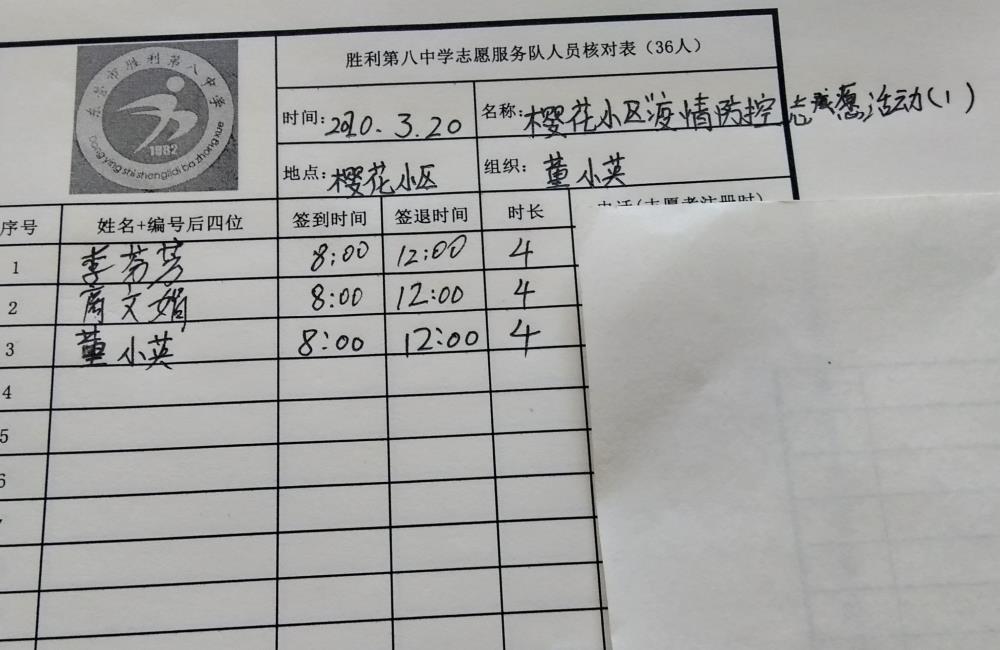 胜利第八中学志愿服务队人员核对表（36人）
东营市胜利第八中学
1982
Dong ying shi sheng li di ba zhong xue
时间：2020.3.20 名称：樱花小区疫情防控志愿活动(1)
地点：樱花小区 组织：董小英
序号 姓名+编号后四位 签到时间 签退时间 时长 电话(志愿者注册时)
1 李芳芳 8:00 12:00 4
2 周文娟 8:00 12:00 4
3 董小英 8:00 12:00 4
4
5
6
7